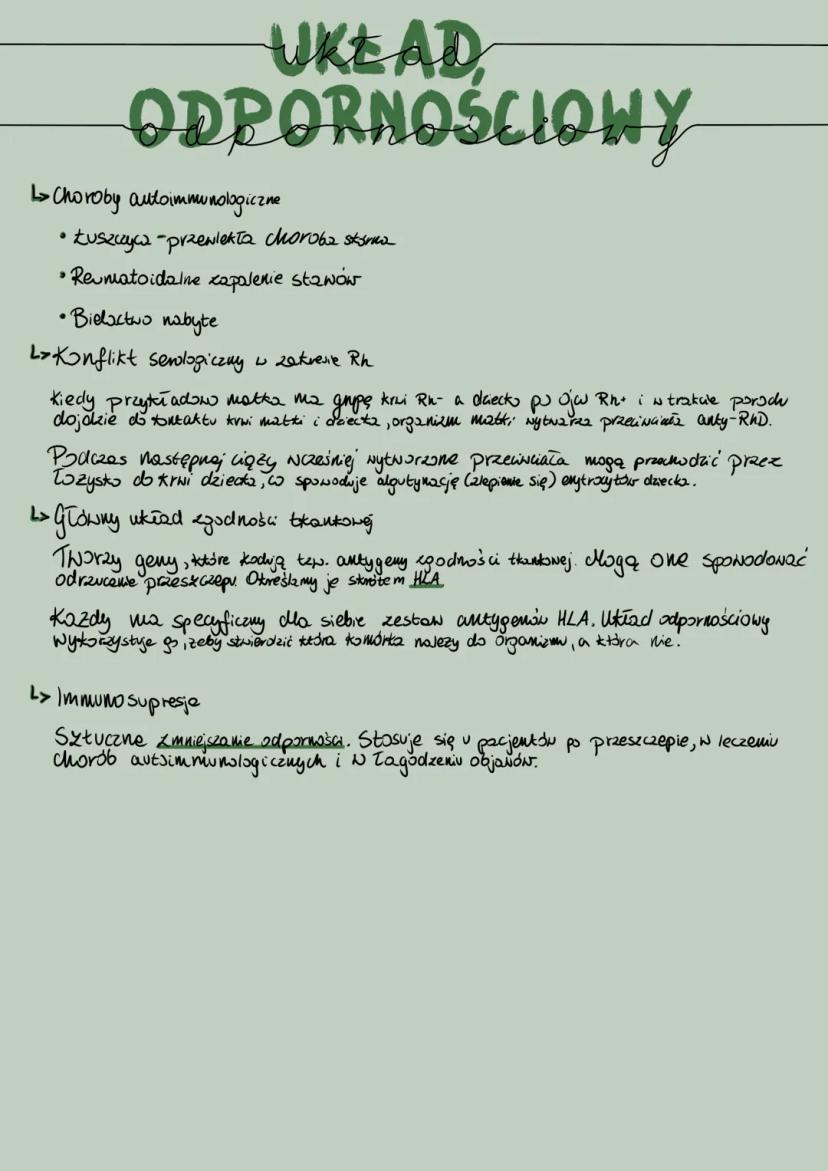 UKŁAD
układ
ODPORNOŚCIOWY
odpornościowy
↳ Choroby autoimmunologiczne
• Łuszczyca - przewlekła choroba skórna
• Reumatoidalne zapalenie stawów
• Bielactwo nabyte
↳ Konflikt serologiczny w zakresie Rh
Kiedy przykładowo matka ma grupę krwi Rh- a dziecko po ojcu Rh+ i w trakcie porodu
dojdzie do kontaktu krwi matki i dziecka, organizm matki wytwarza przeciwciała anty-RhD.
Podczas następnej ciąży wcześniej wytworzone przeciwciała mogą przechodzić przez
łożysko do krwi dziecka, co spowoduje algutynację (zlepienie się) erytrocytów dziecka.
↳ Główny układ zgodności tkankowej
Tworzy geny, które kodują tzw. antygeny zgodności tkankowej. Mogą one spowodować
odrzucenie przeszczepu. Określamy je skrótem HLA
Każdy ma specyficzny dla siebie zestaw antygenów HLA. Układ odpornościowy
wykorzystuje go, żeby stwierdzić która komórka należy do organizmu, a która nie.
↳ Immunosupresja
Sztuczne zmniejszanie odporności. Stosuje się u pacjentów po przeszczepie, w leczeniu
chorób autoimmunologicznych i w łagodzeniu objawów.